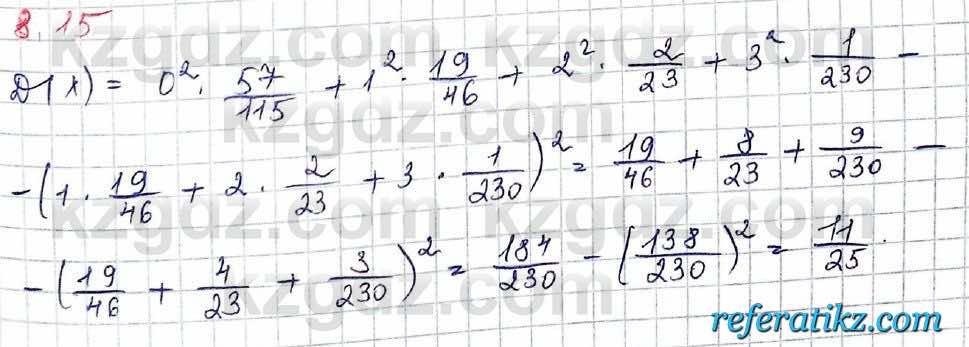 8.15
D(x) = 0² · 57/115 + 1² · 19/46 + 2² · 2/23 + 3² · 1/230 −
− (1 · 19/46 + 2 · 2/23 + 3 · 1/230)² = 19/46 + 8/23 + 9/230 −
− (19/46 + 4/23 + 3/230)² = 184/230 − (138/230)² = 11/25.
kzgdz.com kzgdz.com
kzgdz.com
kzgdz.com kzgdz.com
kzgdz.com
referatikz.com